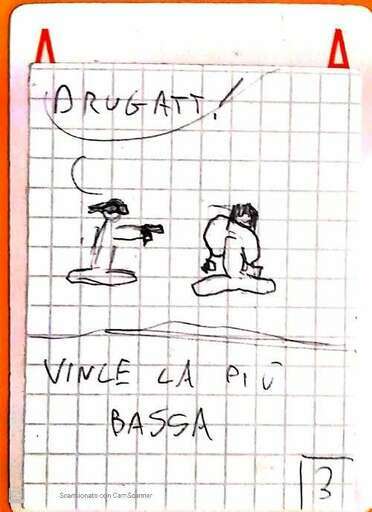 DRUGATT!
VINCE LA PIÙ
BASSA
3
Scansionato con CamScanner